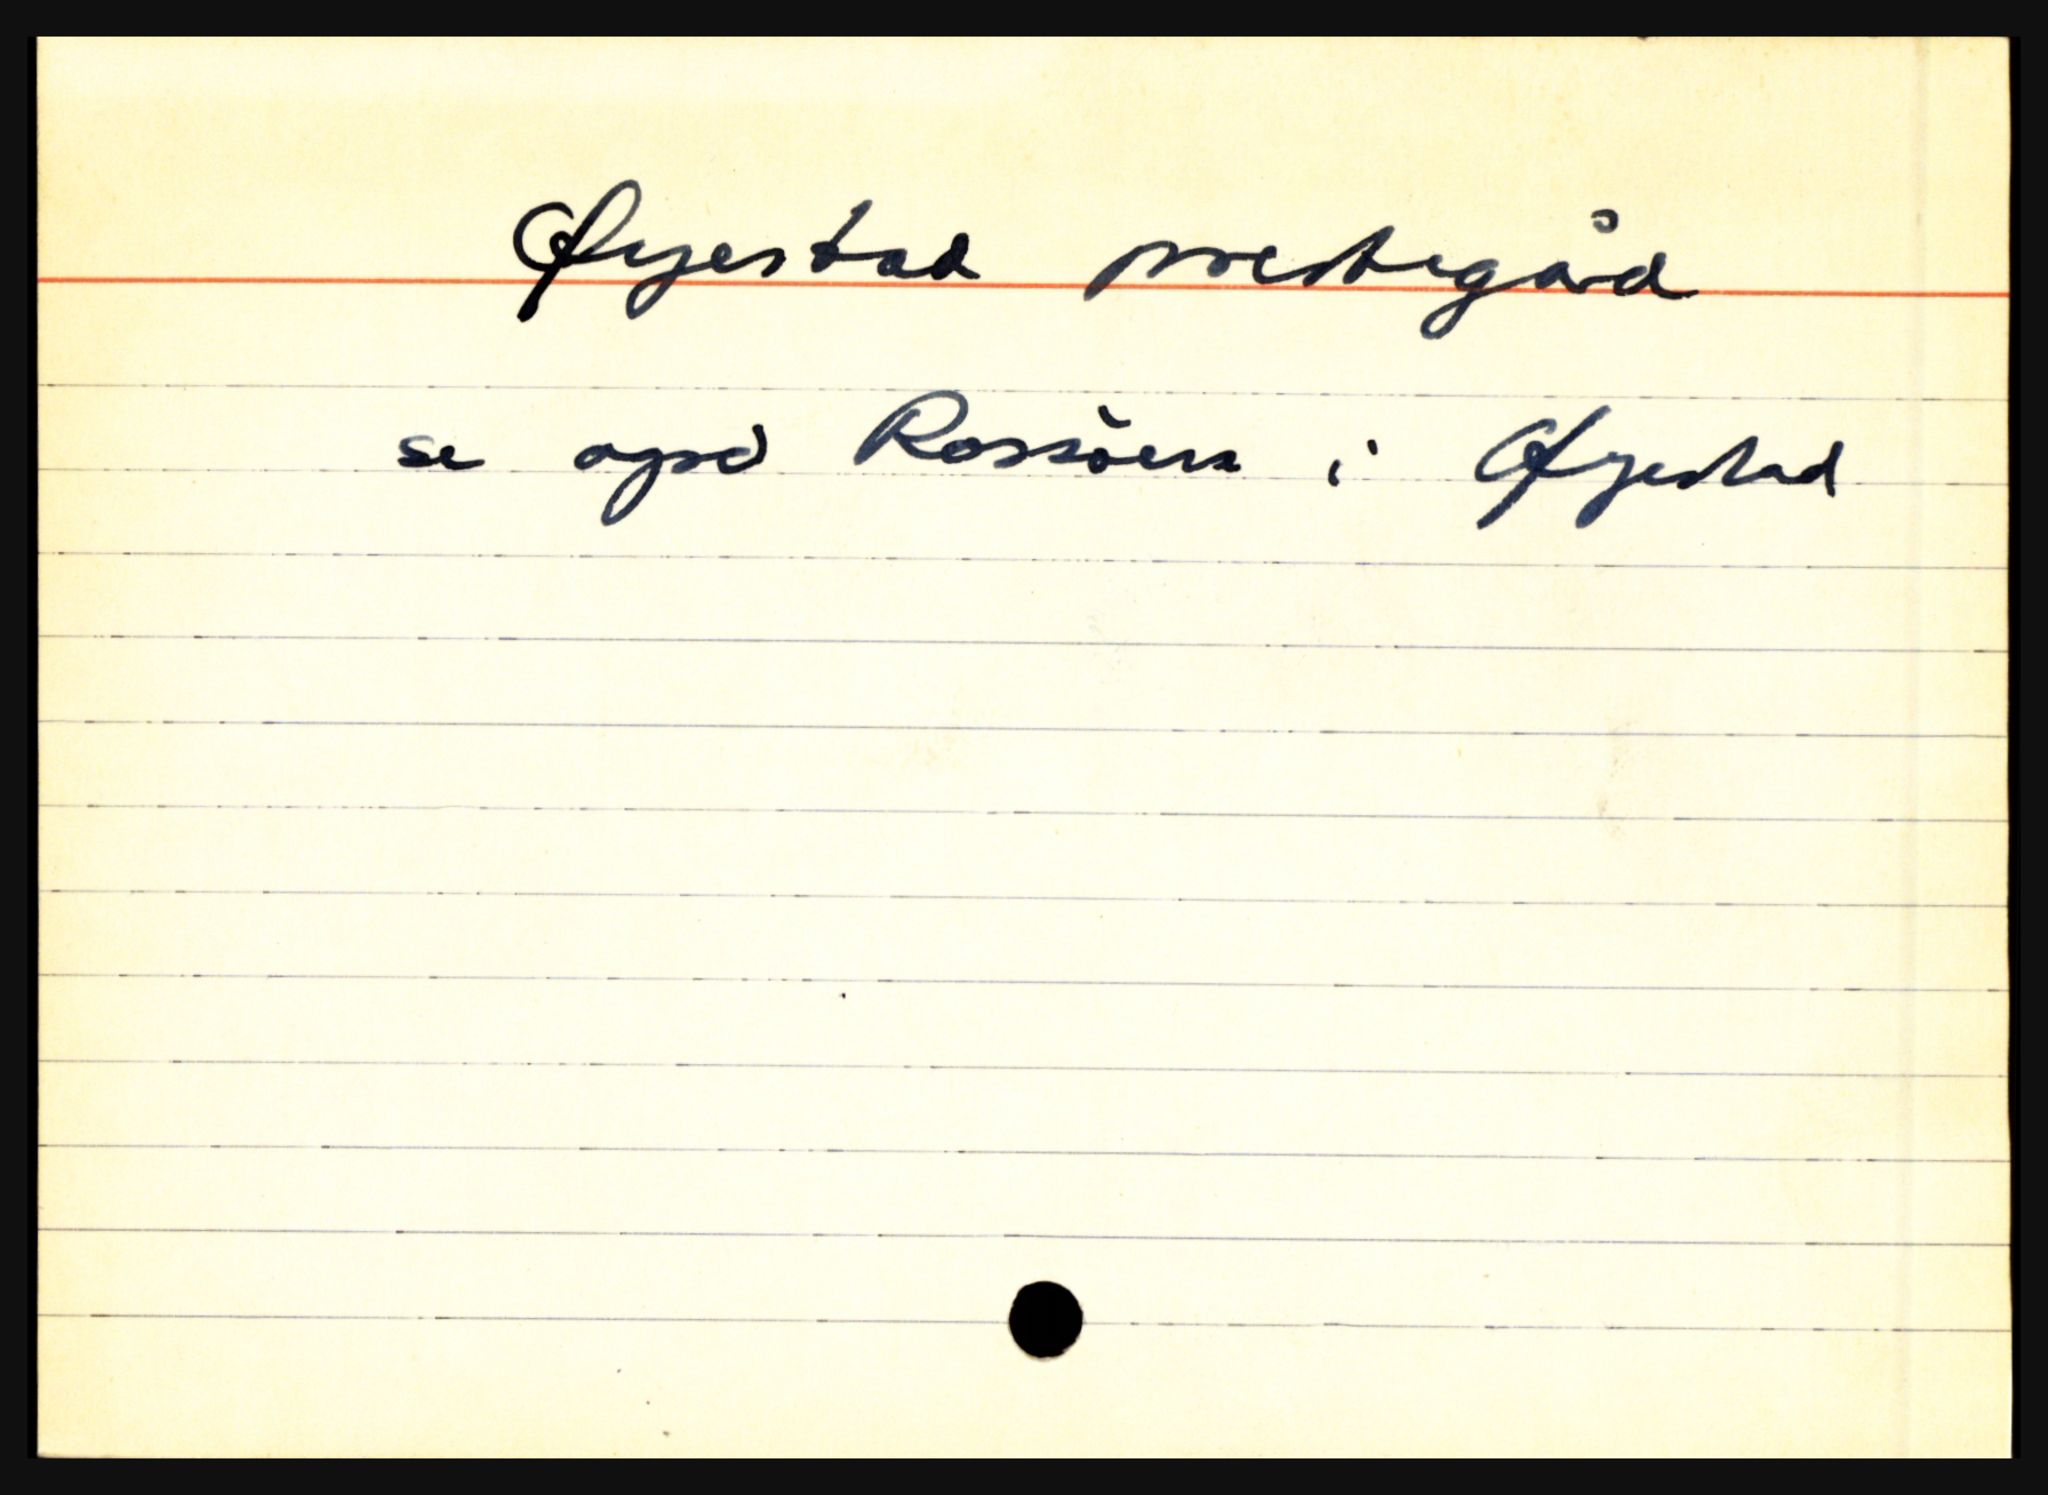 Øyestad prestegård
se også Rossåen i Øyestad